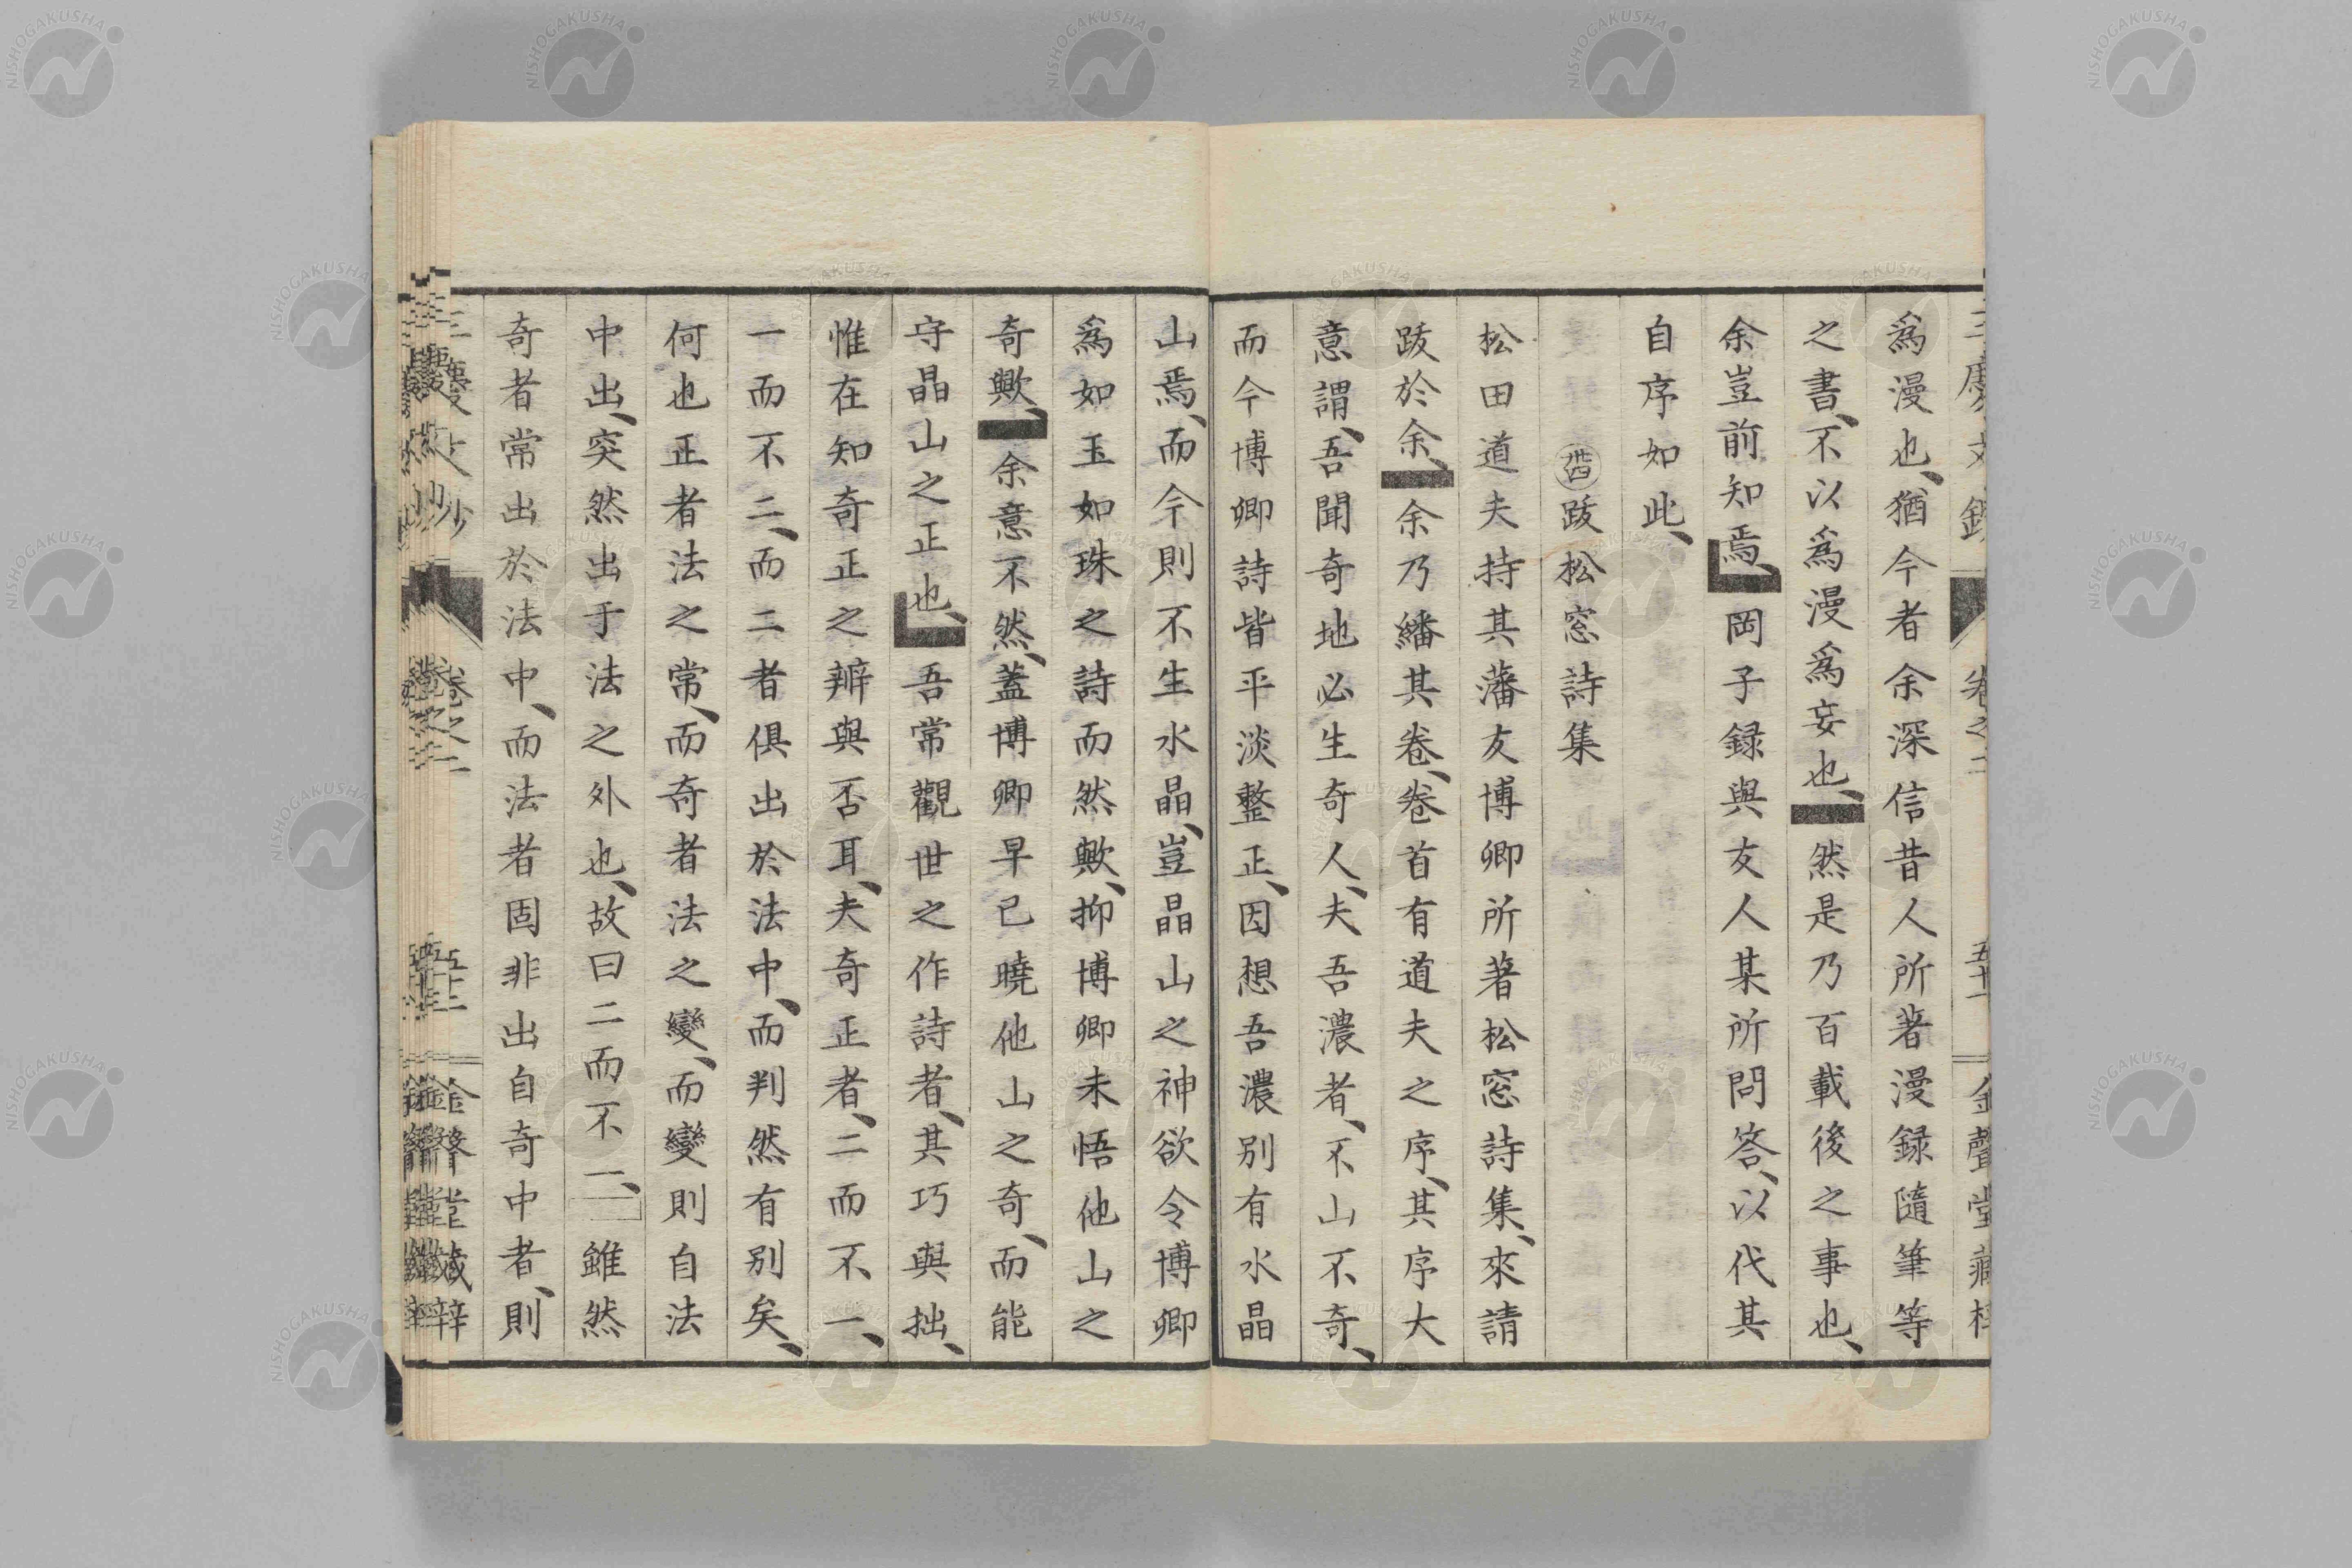 爲漫也、猶今者余深信昔人所著漫録隨筆等
之書、不以爲漫爲妄也、然是乃百載後之事也、
余豈前知焉、岡子録與友人某所問答、以代其
自序如此、
跋松窓詩集
松田道夫持其藩友博卿所著松窓詩集、來請
跋於余、余乃繙其卷、卷首有道夫之序、其序大
意謂、吾聞奇地必生奇人、夫吾濃者、不山不奇、
而今博卿詩皆平淡整正、因想吾濃別有水晶
山焉、而今則不生水晶、豈晶山之神欲令博卿
爲如玉如珠之詩而然歟、抑博卿未悟他山之
奇歟、余意不然、蓋博卿早已曉他山之奇、而能
守晶山之正也、吾常觀世之作詩者、其巧與拙、
惟在知奇正之辨與否耳、夫奇正者、二而不一、
一而不二、而二者俱出於法中、而判然有別矣、
何也正者法之常、而奇者法之變、而變則自法
中出、突然出于法之外也、故曰二而不一、雖然
奇者常出於法中、而法者固非出自奇中者、則
卷之二
五十一
金聲堂藏
NISHOGAKUSHA